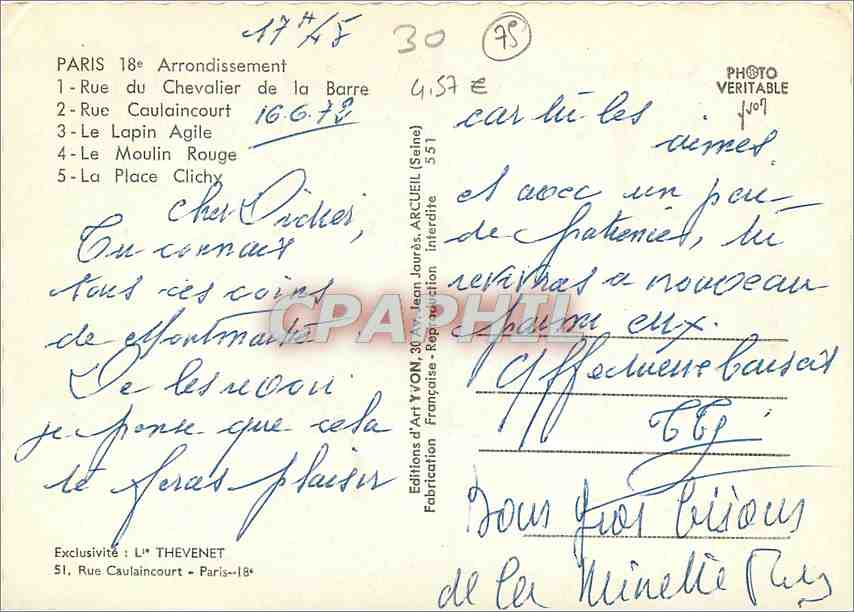 17H45
30
75
4.57 €
PARIS 18e Arrondissement
1-Rue du Chevalier de la Barre
2-Rue Caulaincourt
16.6.72
3-Le Lapin Agile
4-Le Moulin Rouge
5-La Place Clichy
Cher Didier,
Tu connais
tous ces coins
de Montmartre
De les revoir
je pense que cela
te feras plaisir
Exclusivité : Lie THEVENET
51, Rue Caulaincourt - Paris-18e
Editions d'Art YVON, 30 Av. Jean Jaurès. ARCUEIL (Seine)
Fabrication Française - Reproduction interdite 551
PHOTO
VERITABLE
car tu les
aimes
et avec un peu
de patience, tu
revivras a nouveau
parmi eux.
Affectueux baisers
Bons gros bisous
de la Minette
CPAPHIL